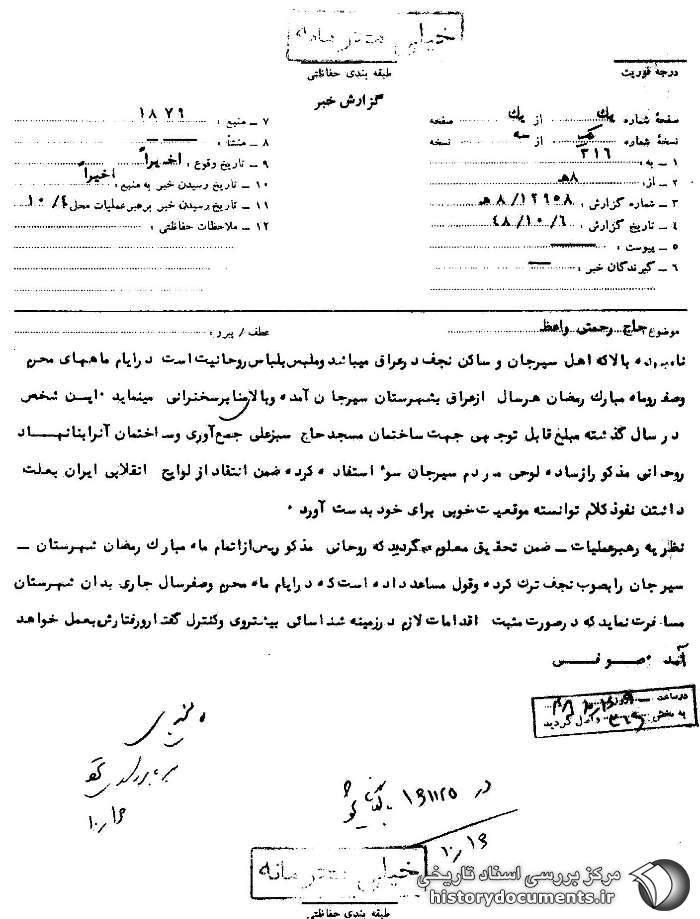 خیلی محرمانه
طبقه بندی حفاظتی
درجه فوریت
گزارش خبر
صفحهٔ شماره یک از یک صفحه
نسخهٔ شماره یک از سه نسخه
۱ ــ به : ۳۱۶
۲ ــ از : ۸ هـ
۳ ــ شماره گزارش : ۱۲۹۵۸/ ۸ هـ
۴ ــ تاریخ گزارش : ۴۸/۱۰/۶
۵ ــ پیوست : ــــ
۶ ــ گیرندگان خبر : ــــ
۷ ــ منبع : ۱۸۷۹
۸ ــ منشأ : ــــ
۹ ــ تاریخ وقوع : اخیراً
۱۰ ــ تاریخ رسیدن خبر به منبع : اخیراً
۱۱ ــ تاریخ رسیدن خبر برهبر عملیات محلی : ۱۰/۴
۱۲ ــ ملاحظات حفاظتی :
موضوع : حاج رحمتی واعظ
عطف / پیرو :
نامبرده بالا که اهل سیرجان و ساکن نجف درعراق میباشد وملبس بلباس روحانیت است درایام ماههای محرم
وصفر وماه مبارک رمضان هرسال ازعراق بشهرستان سیرجان آمده وبالامنابر سخنرانی مینماید ۰ این شخص
در سال گذشته مبلغ قابل توجهی جهت ساختمان مسجد حاج سبزعلی جمع آوری وساختمان آنرا بنانهاد
روحانی مذکور ازساده لوحی مردم سیرجان سوء استفاده کرده ضمن انتقاد از لوایح انقلابی ایران بعلت
داشتن نفوذ کلام توانسته موقعیت خوبی برای خود بدست آورد ۰
نظریه رهبرعملیات ــ ضمن تحقیق معلوم گردید که روحانی مذکور پس ازاتمام ماه مبارک رمضان شهرستان ــ
سیرجان رابصوب نجف ترک کرده وقول مساعد داده است که درایام ماه محرم وصفر سال جاری بدان شهرستان
مسافرت نماید که درصورت مثبت اقدامات لازم درزمینه شناسائی بیشتر وی وکنترل گفتار ورفتارش بعمل خواهد
آمد ۰ صوفی
در ساعت روز
به بخش ۳۱۶ واصل گردید
۱۰/۱۶
در
بایگانی شود
۱۰/۱۶
خیلی محرمانه
طبقه بندی حفاظتی
مرکز بررسی اسناد تاریخی
historydocuments.ir